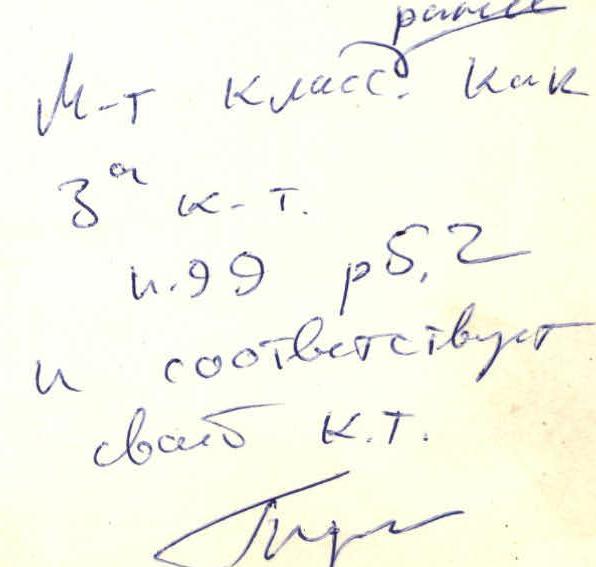 ранее
М-т класс. как
3а к-т.
п.99 р5,2
и соответствует
своей к.т.